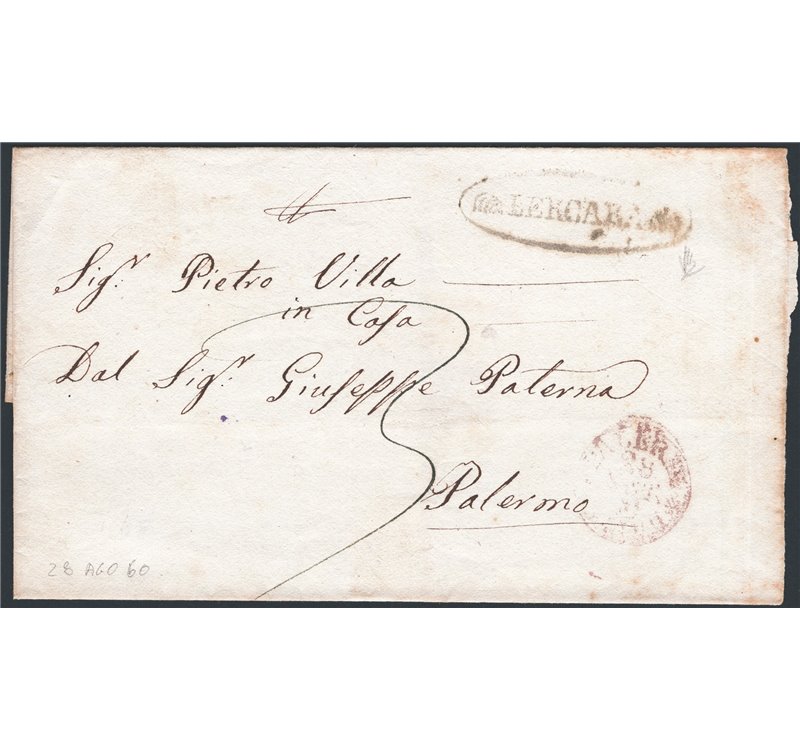 LERCARA
Sig.r Pietro Villa
in Casa
Dal Sig.r Giuseppe Paterna
3
Palermo
28 AGO 60